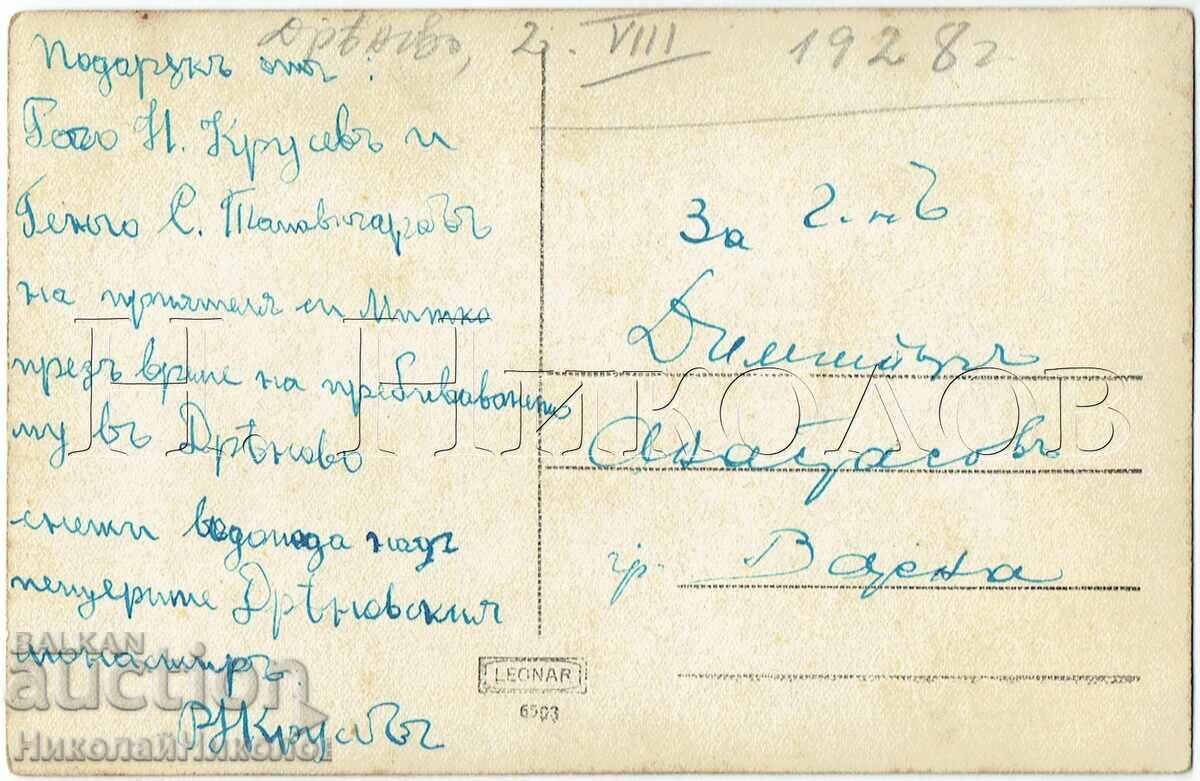 Дрѣново, 2. VIII 1928 г
Подаръкъ отъ:
Гочо Н. Крусевъ и
Геньо С.
на приятеля си Митко
презъ време на пребиваванего
му въ Дрѣново
снети водопада надъ
пещерите Дрѣновския
монастиръ.
Крусевъ
За г-нъ
Димитъръ
Анастасовъ
гр. Варна
LEONAR
6593
Н. Николов
BALKAN
auction
НиколайНиколов